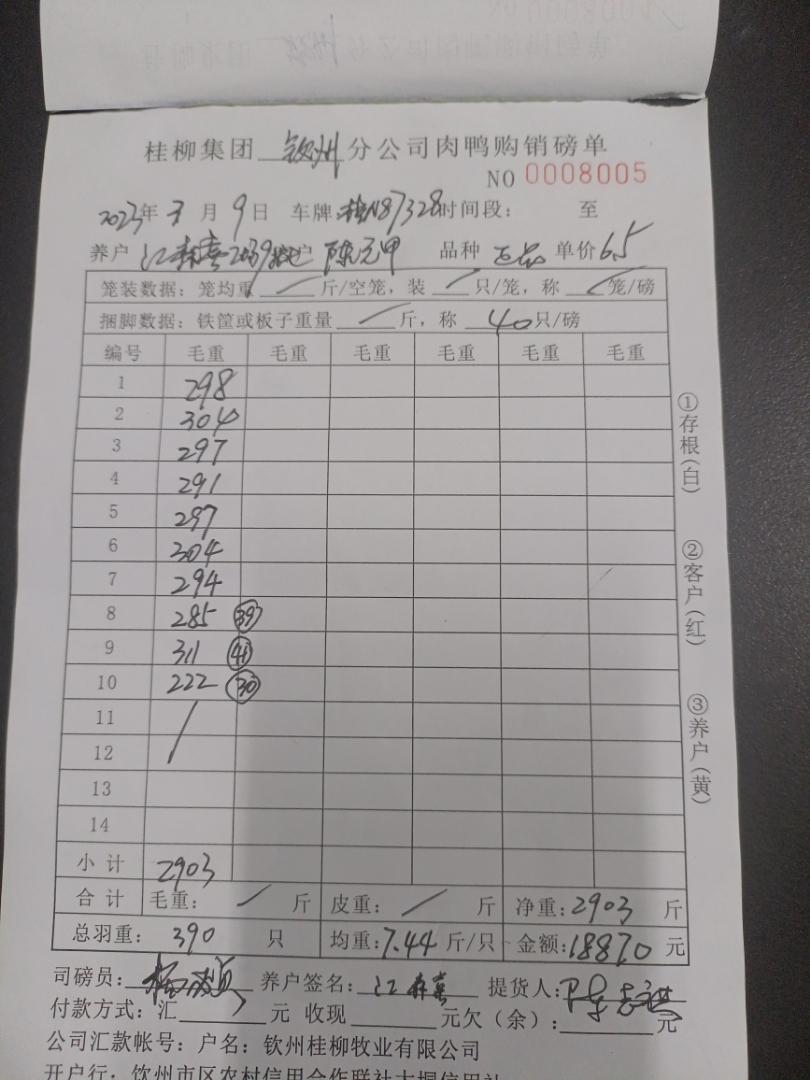 桂柳集团 钦州 分公司肉鸭购销磅单
NO 0008005
2023年 3 月 9 日 车牌:桂N87328时间段: 至
养户 江 喜 户 陈元甲 品种 单价6.5
笼装数据:笼均重 / 斤/空笼,装 / 只/笼,称 / 笼/磅
捆脚数据:铁筐或板子重量 / 斤,称 40只/磅
编号 毛重 毛重 毛重 毛重 毛重 毛重
1 298
2 304
3 297
4 291
5 297
6 304
7 294
8 285 39
9 311 41
10 222 30
11 /
12
13
14
小计 2903
合计 毛重: / 斤 皮重: / 斤 净重:2903 斤
总羽重: 390 只 均重:7.44斤/只 金额:18870 元
①存根(白)
②客户(红)
③养户(黄)
司磅员: 养户签名: 江 喜 提货人:
付款方式:汇 元 收现 元欠(余): 元
公司汇款帐号:户名:钦州桂柳牧业有限公司
开户行:钦州市区农村信用合作联社大垌信用社